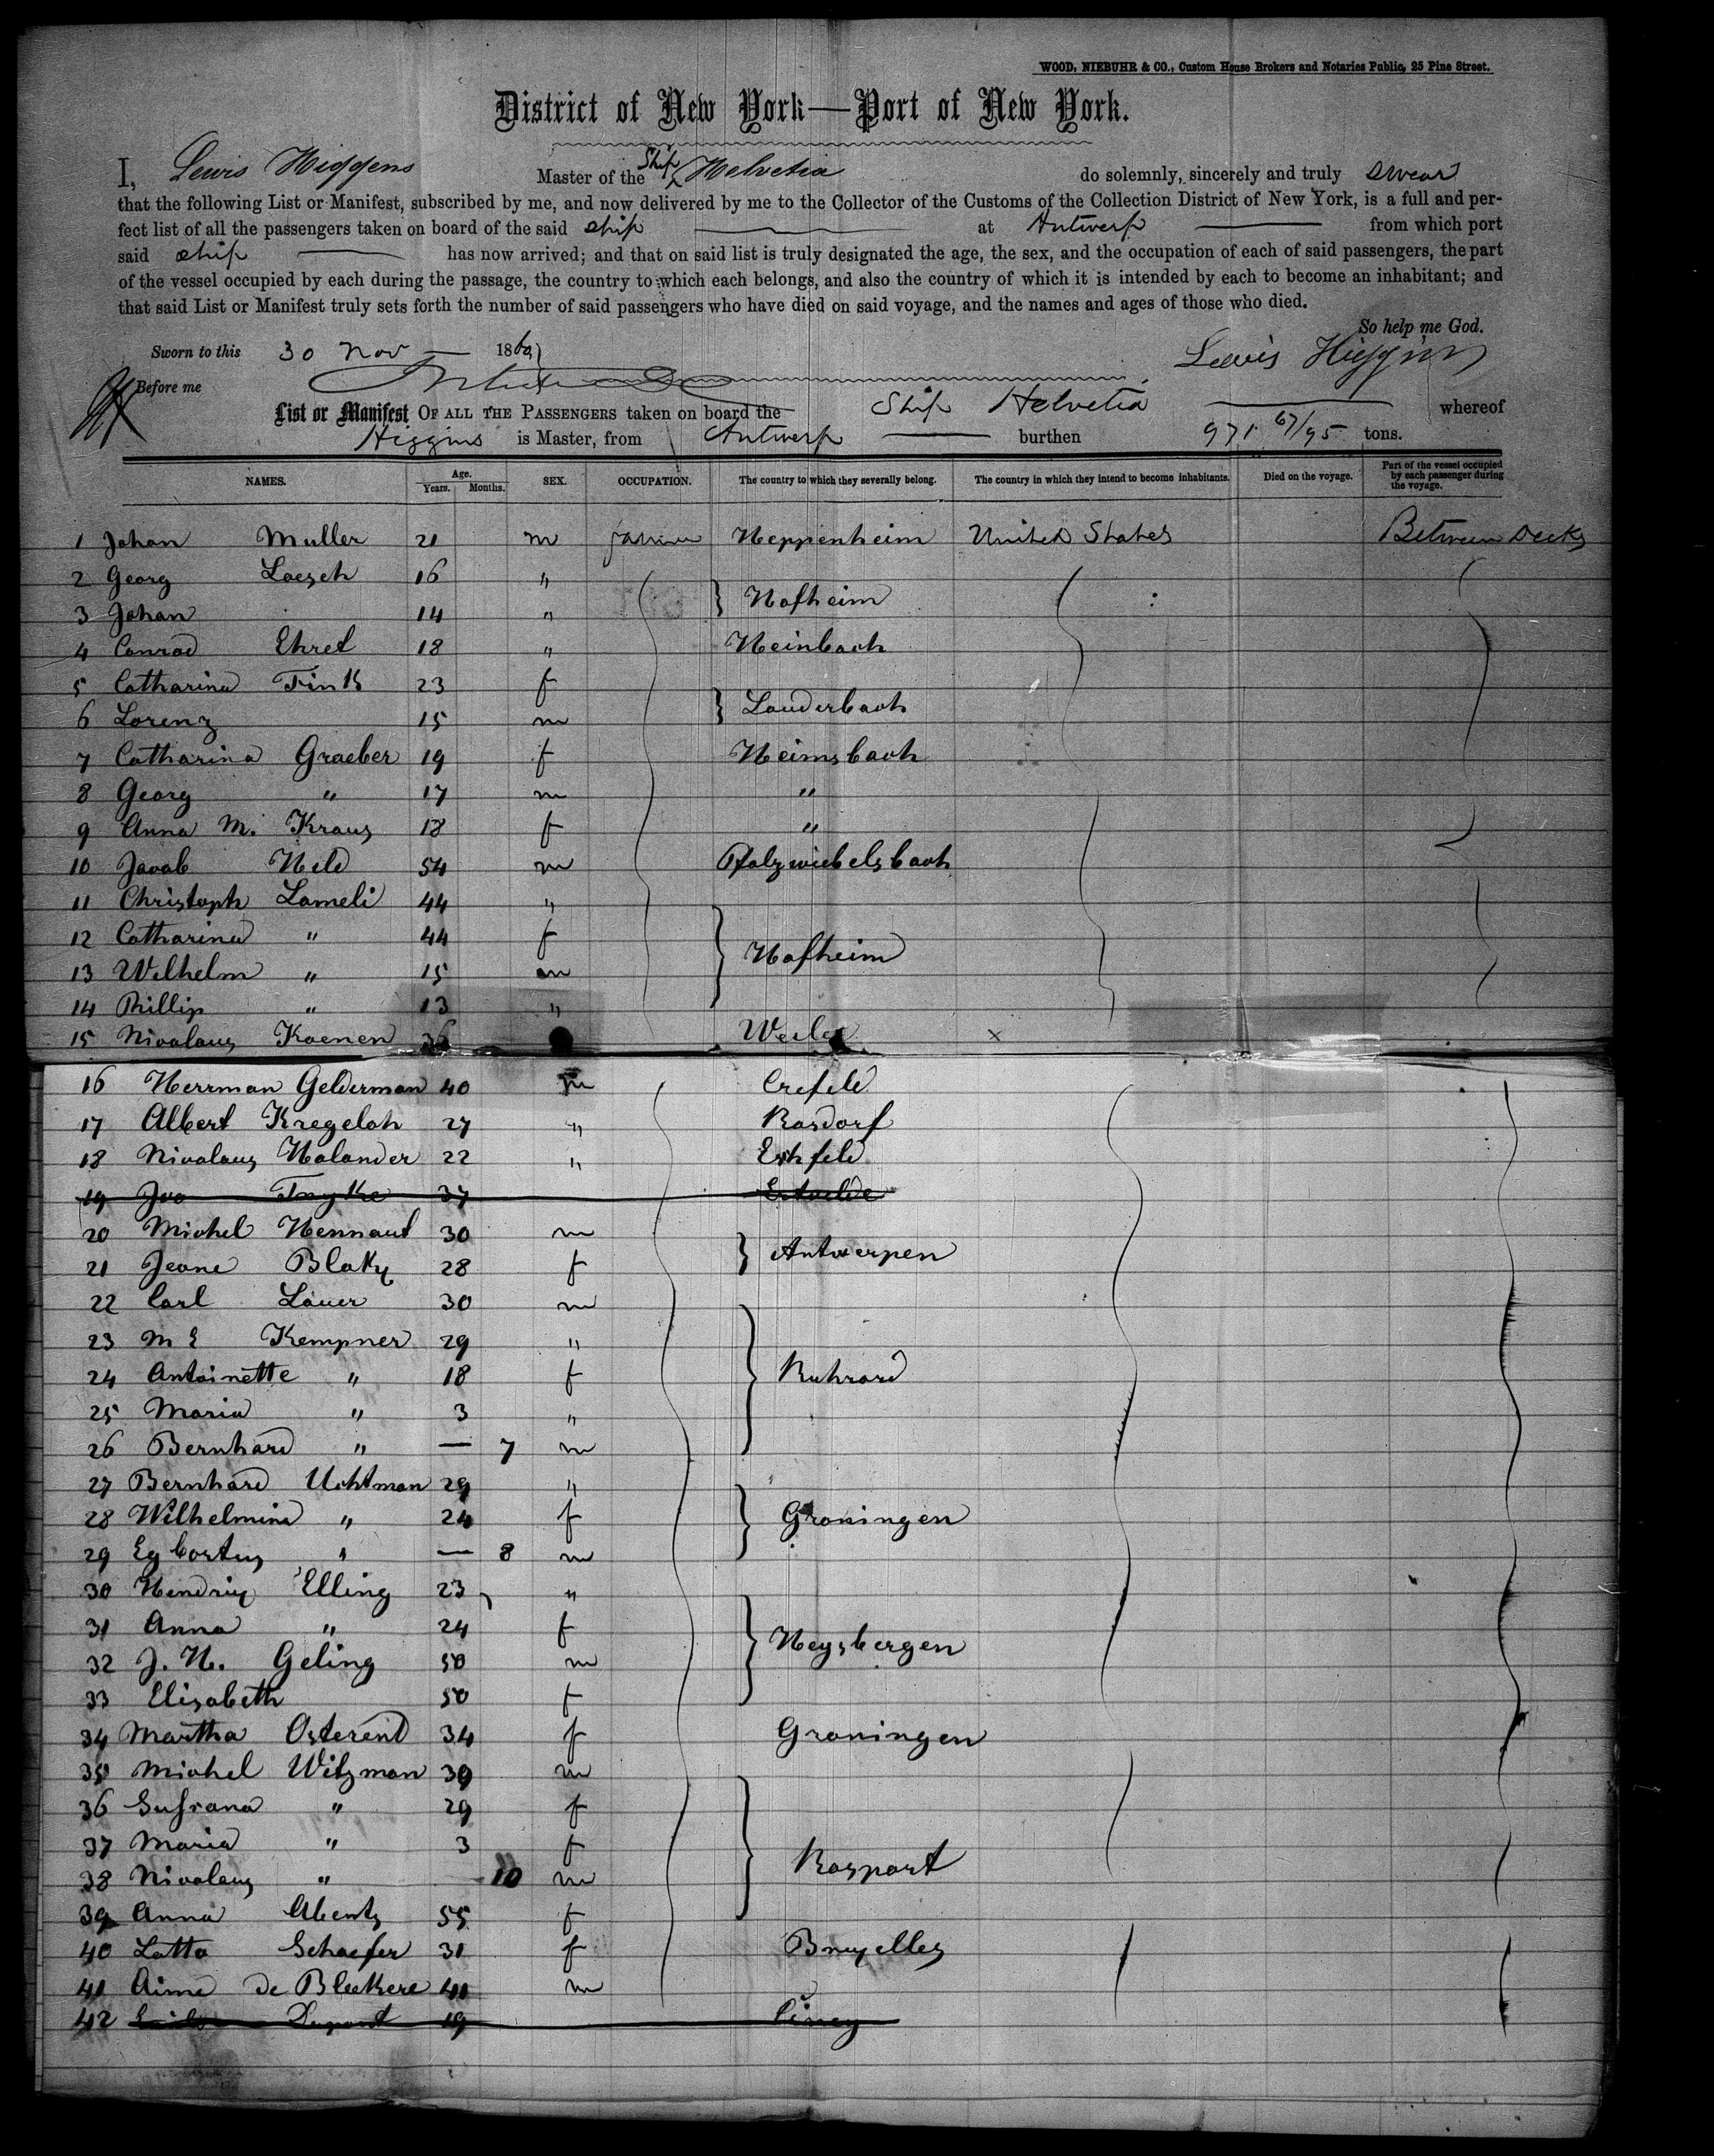 WOOD, NIEBUHR & CO., Custom House Brokers and Notaries Public, 25 Pine Street.
District of New York—Port of New York.
I, Lewis Higgens Master of the Ship Helvetia do solemnly, sincerely and truly swear
that the following List or Manifest, subscribed by me, and now delivered by me to the Collector of the Customs of the Collection District of New York, is a full and per-
fect list of all the passengers taken on board of the said ship at Antwerp from which port
said ship has now arrived; and that on said list is truly designated the age, the sex, and the occupation of each of said passengers, the part
of the vessel occupied by each during the passage, the country to which each belongs, and also the country of which it is intended by each to become an inhabitant; and
that said List or Manifest truly sets forth the number of said passengers who have died on said voyage, and the names and ages of those who died.
So help me God.
Sworn to this 30 Nov 186 Lewis Higgins
Before me
List or Manifest OF ALL THE PASSENGERS taken on board the Ship Helvetia whereof
Higgins is Master, from Antwerp burthen 971 67/95 tons.
NAMES. Age. Years. Months. SEX. OCCUPATION. The country to which they severally belong. The country in which they intend to become inhabitants. Died on the voyage. Part of the vessel occupied by each passenger during the voyage.
1 Johan Muller 21 m farmer Heppenheim United States Between Decks
2 Georg Loesch 16 "
3 Johan 14 " } Hofheim
4 Conrad Ehret 18 " Heinbach
5 Catharina Fink 23 f
6 Lorenz 15 m } Lauderbach
7 Catharina Graeber 19 f Heimsbach
8 Georg " 17 m "
9 Anna M. Kraus 18 f "
10 Jacob Held 54 m Pfalzwiebelsbach
11 Christoph Lameli 44 "
12 Catharina " 44 f
13 Wilhelm " 15 m } Hofheim
14 Phillip " 13 "
15 Nicolaus Koenen 36 Weiler x
16 Herrman Gelderman 40 m Crefeld
17 Albert Kregeloh 27 " Rasdorf
18 Nicolaus Holander 22 " Eshfeld
19 Ivo Tnyke 37 Ertvelde
20 Michel Hennaut 30 m
21 Jeane 28 f } Antwerpen
22 Carl Lauer 30 m
23 M E Kempner 29 "
24 Antoinette " 18 f } Ruhrord
25 Maria " 3 "
26 Bernhard " — 7 m
27 Bernhard Uchtman 29 "
28 Wilhelmina " 24 f } Groningen
29 Egbertus " — 8 m
30 Hendrix Elling 23 "
31 Anna " 24 f
32 J. H. Geling 50 m } Heysbergen
33 Elisabeth 50 f
34 Martha Osterend 34 f Groningen
35 Michel Witzman 39 m
36 Susana " 29 f
37 Maria " 3 f } Rosport
38 Nicolaus " 10 m
39 Anna Abentz 55 f
40 Lotta Schaefer 31 f Bruxelles
41 Aime De Bleekere 41 m
42 Dupont 19 Ciney